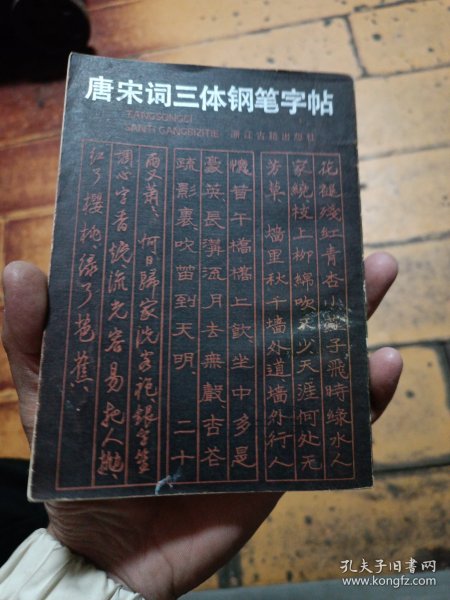 唐宋词三体钢笔字帖
TANGSONGCI
SANTI GANGBIZITIE 浙江古籍出版社
花褪殘紅青杏小燕子飛時綠水人
家繞枝上柳綿吹又少天涯何处无
芳草 墙里秋千墙外道墙外行人
憶昔午橋橋上飲坐中多是
豪英長溝流月去無聲杏花
疏影裏吹笛到天明 二十
雨又萧萧 何日歸家洗客袍銀字笙
調心字香燒流光容易把人拋
红了櫻桃绿了芭蕉
孔夫子旧书网
www.kongfz.com